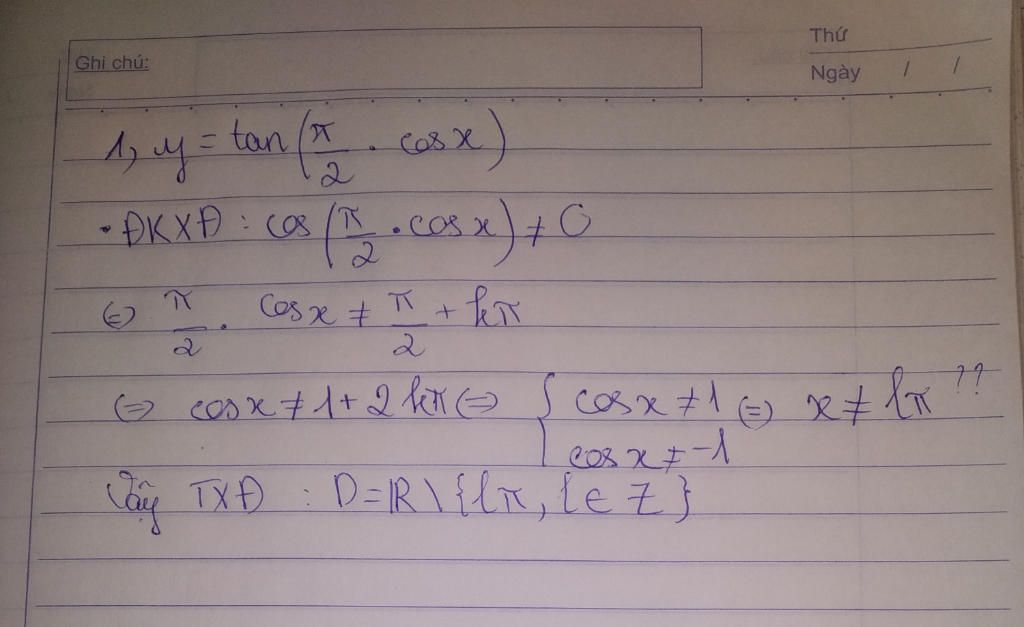 Ghi chú:
Thứ
Ngày / /
1, y = tan(π/2 . cosx)
• ĐKXĐ : cos(π/2 . cosx) ≠ 0
⇔ π/2 . cosx ≠ π/2 + kπ
⇔ cosx ≠ 1 + 2kπ ⇔ { cosx ≠ 1 ⇔ x ≠ lπ ??
cosx ≠ -1
Vậy TXĐ : D = ℝ \ {lπ, l ∈ Z}